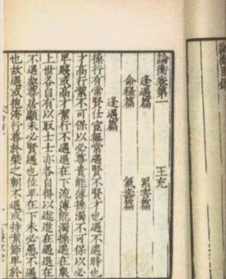 論衡卷第一
王充
逢遇篇 累害篇
命祿篇 氣壽篇
逢遇篇
操行有常賢仕宦無常遇賢不賢才也遇不遇時也
才高行潔不可保以必尊貴能薄操濁不可保以必
卑賤或高才潔行不遇退在下流薄能濁操遇在衆
上世各自有以取士士亦各自得以進進在遇退在
不遇處尊居顯未必賢遇也位卑在下未必愚不遇
也故遇或抱洿行尊於桀之朝不遇或持潔節卑於